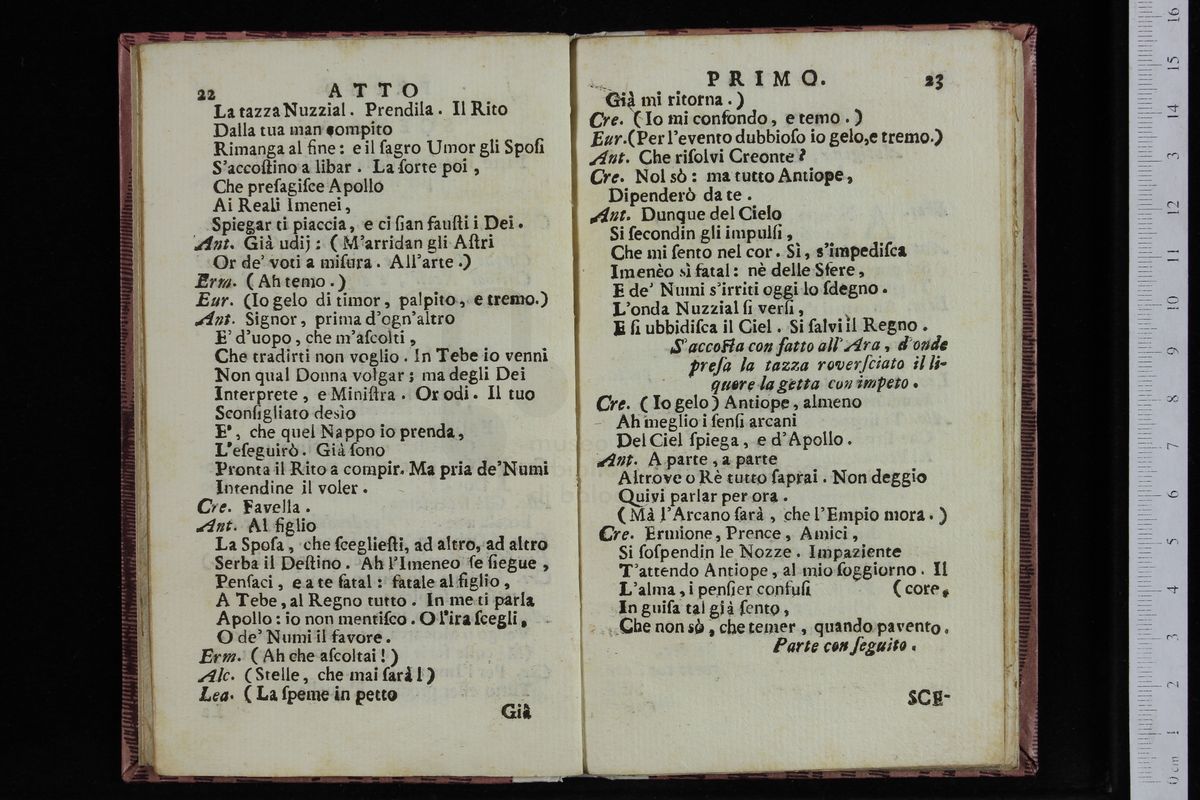 22 ATTO
La tazza Nuzzial. Prendila. Il Rito
Dalla tua man compito
Rimanga al fine: e il ſagro Umor gli Spoſi
S'accoſtino a libar. La ſorte poi,
Che preſagiſce Apollo
Ai Reali Imenei,
Spiegar ti piaccia, e ci ſian fauſti i Dei.
Ant. Già udij: (M'arridan gli Aſtri
Or de' voti a miſura. All'arte.)
Erm. (Ah temo.)
Eur. (Io gelo di timor, palpito, e tremo.)
Ant. Signor, prima d'ogn'altro
E' d'uopo, che m'aſcolti,
Che tradirti non voglio. In Tebe io venni
Non qual Donna volgar; ma degli Dei
Interprete, e Miniſtra. Or odi. Il tuo
Sconſigliato desìo
E', che quel Nappo io prenda,
L'eſeguirò. Già ſono
Pronta il Rito a compir. Ma pria de' Numi
Intendine il voler.
Cre. Favella.
Ant. Al figlio
La Spoſa, che ſceglieſti, ad altro, ad altro
Serba il Deſtino. Ah l'Imeneo ſe ſiegue,
Penſaci, e a te fatal: fatale al figlio,
A Tebe, al Regno tutto. In me ti parla
Apollo: io non mentiſco. O l'ira ſcegli,
O de' Numi il favore.
Erm. (Ah che aſcoltai!)
Alc. (Stelle, che mai ſarà!)
Lea. (La ſpeme in petto
Già
PRIMO. 23
Già mi ritorna.)
Cre. (Io mi confondo, e temo.)
Eur. (Per l'evento dubbioſo io gelo, e tremo.)
Ant. Che riſolvi Creonte?
Cre. Nol sò: ma tutto Antiope,
Dipenderò da te.
Ant. Dunque del Cielo
Si ſecondin gli impulſi,
Che mi ſento nel cor. Sì, s'impediſca
Imenèo sì fatal: nè delle Sfere,
E de' Numi s'irriti oggi lo ſdegno.
L'onda Nuzzial ſi verſi,
E ſi ubbidiſca il Ciel. Si ſalvi il Regno.
S'accoſta con faſto all'Ara, d'onde
preſa la tazza roverſciato il li-
quore la getta con impeto.
Cre. (Io gelo) Antiope, almeno
Ah meglio i ſenſi arcani
Del Ciel ſpiega, e d'Apollo.
Ant. A parte, a parte
Altrove o Rè tutto ſaprai. Non deggio
Quivi parlar per ora.
(Mà l'Arcano ſarà, che l'Empio mora.)
Cre. Ermione, Prence, Amici,
Si ſoſpendin le Nozze. Impaziente
T'attendo Antiope, al mio ſoggiorno. Il
L'alma, i penſier confuſi (core,
In guiſa tal già ſento,
Che non sò, che temer, quando pavento.
Parte con ſeguito.
SCE-